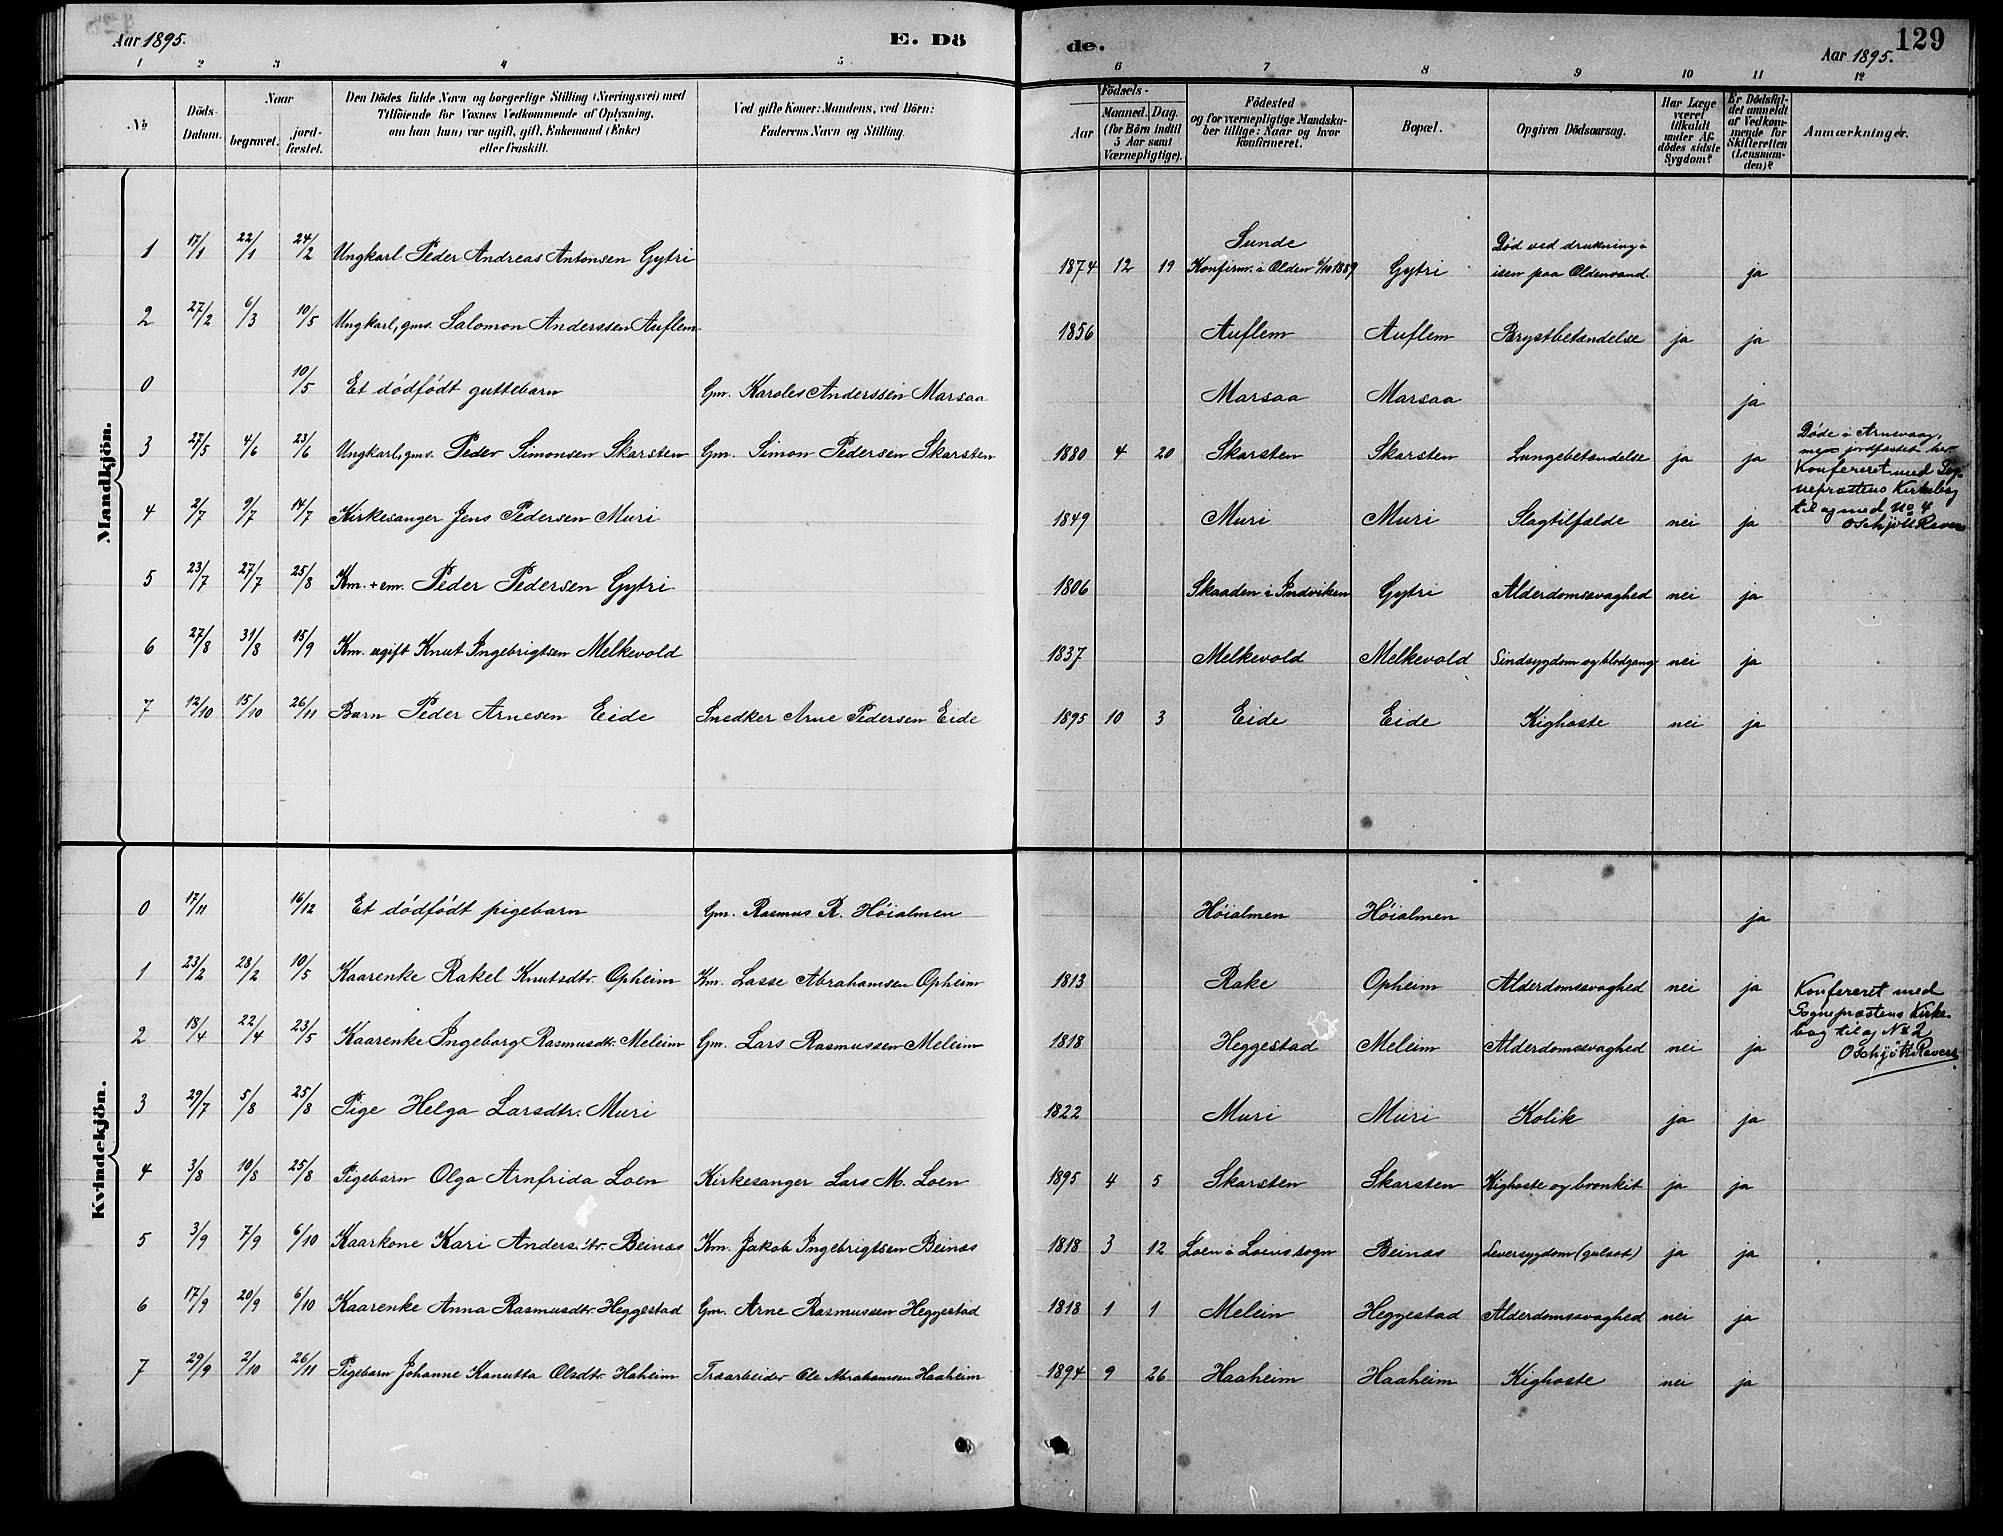 Aar 1895.
E. Dö
de.
Aar 1895.
129
1 2 3 4 5 6 7 8 9 10 11 12
No
Döds-Datum.
Naar
begravet.
jord-fæstet.
Den Dödes fulde Navn og borgerlige Stilling (Næringsvei) med
Tilföiende for Voxnes Vedkommende af Oplysning,
om han (hun) var ugift, gift, Enkemand (Enke)
eller fraskilt.
Ved gifte Koner: Mandens, ved Börn:
Faderens Navn og Stilling.
Födsels-
Aar
Maaned. Dag.
(for Börn indtil
5 Aar samt
Værnepligtige).
Födested
og for værnepligtige Mandska-
ber tillige: Naar og hvor
konfirmeret.
Bopæl.
Opgiven Dödsaarsag.
Har Læge
været
tilkaldt
under Af-
dödes sidste
Sygdom?
Er Dödsfal-
det anmeldt
af Vedkom-
mende for
Skifteretten
(Lensman-
den)?
Anmærkninger.
Mandkjön.
1 17/1 22/1 24/2 Ungkarl Peder Andreas Antonsen Gytri 1874 12 19 Sunde Konfirm. i Olden 1889 Gytri Død ved drukning i isen paa Oldenvand. ja
2 27/2 6/3 10/5 Ungkarl, gms. Salomon Anderssen Auflem 1856 Auflem Auflem Brystbetændelse ja ja
0 10/5 Et dödfödt guttebarn Gm. Karoles Anderssen Marsaa Marsaa Marsaa ja
3 27/5 4/6 23/6 Ungkarl, gms. Peder Simonsen Skarsten Gm. Simon Pedersen Skarsten 1880 4 20 Skarsten Skarsten Lungebetændelse ja ja
Døde i Arnevaag,
men jordfæstet her
Konfereret med Sog-
neprestens Kirkebog
til og med No 4
OSchjött Revers
4 2/7 9/7 14/7 Kirkesanger Jens Pedersen Muri 1849 Muri Muri Slagtilfælde nei ja
5 23/7 27/7 25/8 Km. + em. Peder Pedersen Gytri 1806 Skaaden i Indviken Gytri Alderdomssvaghed nei ja
6 27/8 31/8 15/9 Km. ugift Knut Ingebrigtsen Melkevold 1837 Melkevold Melkevold Sindsygdom og blodgang nei ja
7 12/10 15/10 26/11 Barn Peder Arnesen Eide Snedker Arne Pedersen Eide 1895 10 3 Eide Eide Kighoste nei ja
Kvindekjön.
0 17/11 16/12 Et dödfödt pigebarn Gm. Rasmus R. Höialmen Höialmen Höialmen ja
1 23/2 28/2 10/5 Kaarenke Rakel Knutsdtr. Opheim Km. Lasse Abrahamsen Opheim 1813 Rake Opheim Alderdomssvaghed nei ja
Konfereret med
Sogneprestens Kirke-
bog til og No 2
OSchjött Revers
2 18/4 22/4 23/5 Kaarenke Ingeborg Rasmusdtr. Meleim Gm. Lars Rasmussen Meleim 1818 Heggestad Meleim Alderdomssvaghed nei ja
3 29/7 5/8 25/8 Pige Helga Larsdtr. Muri 1822 Muri Muri Kolik ja ja
4 3/8 10/8 25/8 Pigebarn Olga Arnfrida Loen Kirkesanger Lars M. Loen 1895 4 5 Skarsten Skarsten Kighoste og bronkit ja ja
5 3/9 7/9 6/10 Kaarkone Kari Anders.dtr. Beinæs Km. Jakob Ingebrigtsen Beinæs 1818 3 12 Loen i Loens sogn Beinæs Leversygdom (gulsot) ja ja
6 17/9 20/9 6/10 Kaarenke Anna Rasmusdtr. Heggestad Gm. Arne Rasmussen Heggestad 1818 1 1 Melein Heggestad Alderdomssvaghed nei ja
7 29/9 2/10 26/11 Pigebarn Johanne Kanutta Olsdtr. Haheim Træarbeider Ole Abrahamsen Haaheim 1894 9 26 Haaheim Haaheim Kighoste nei ja